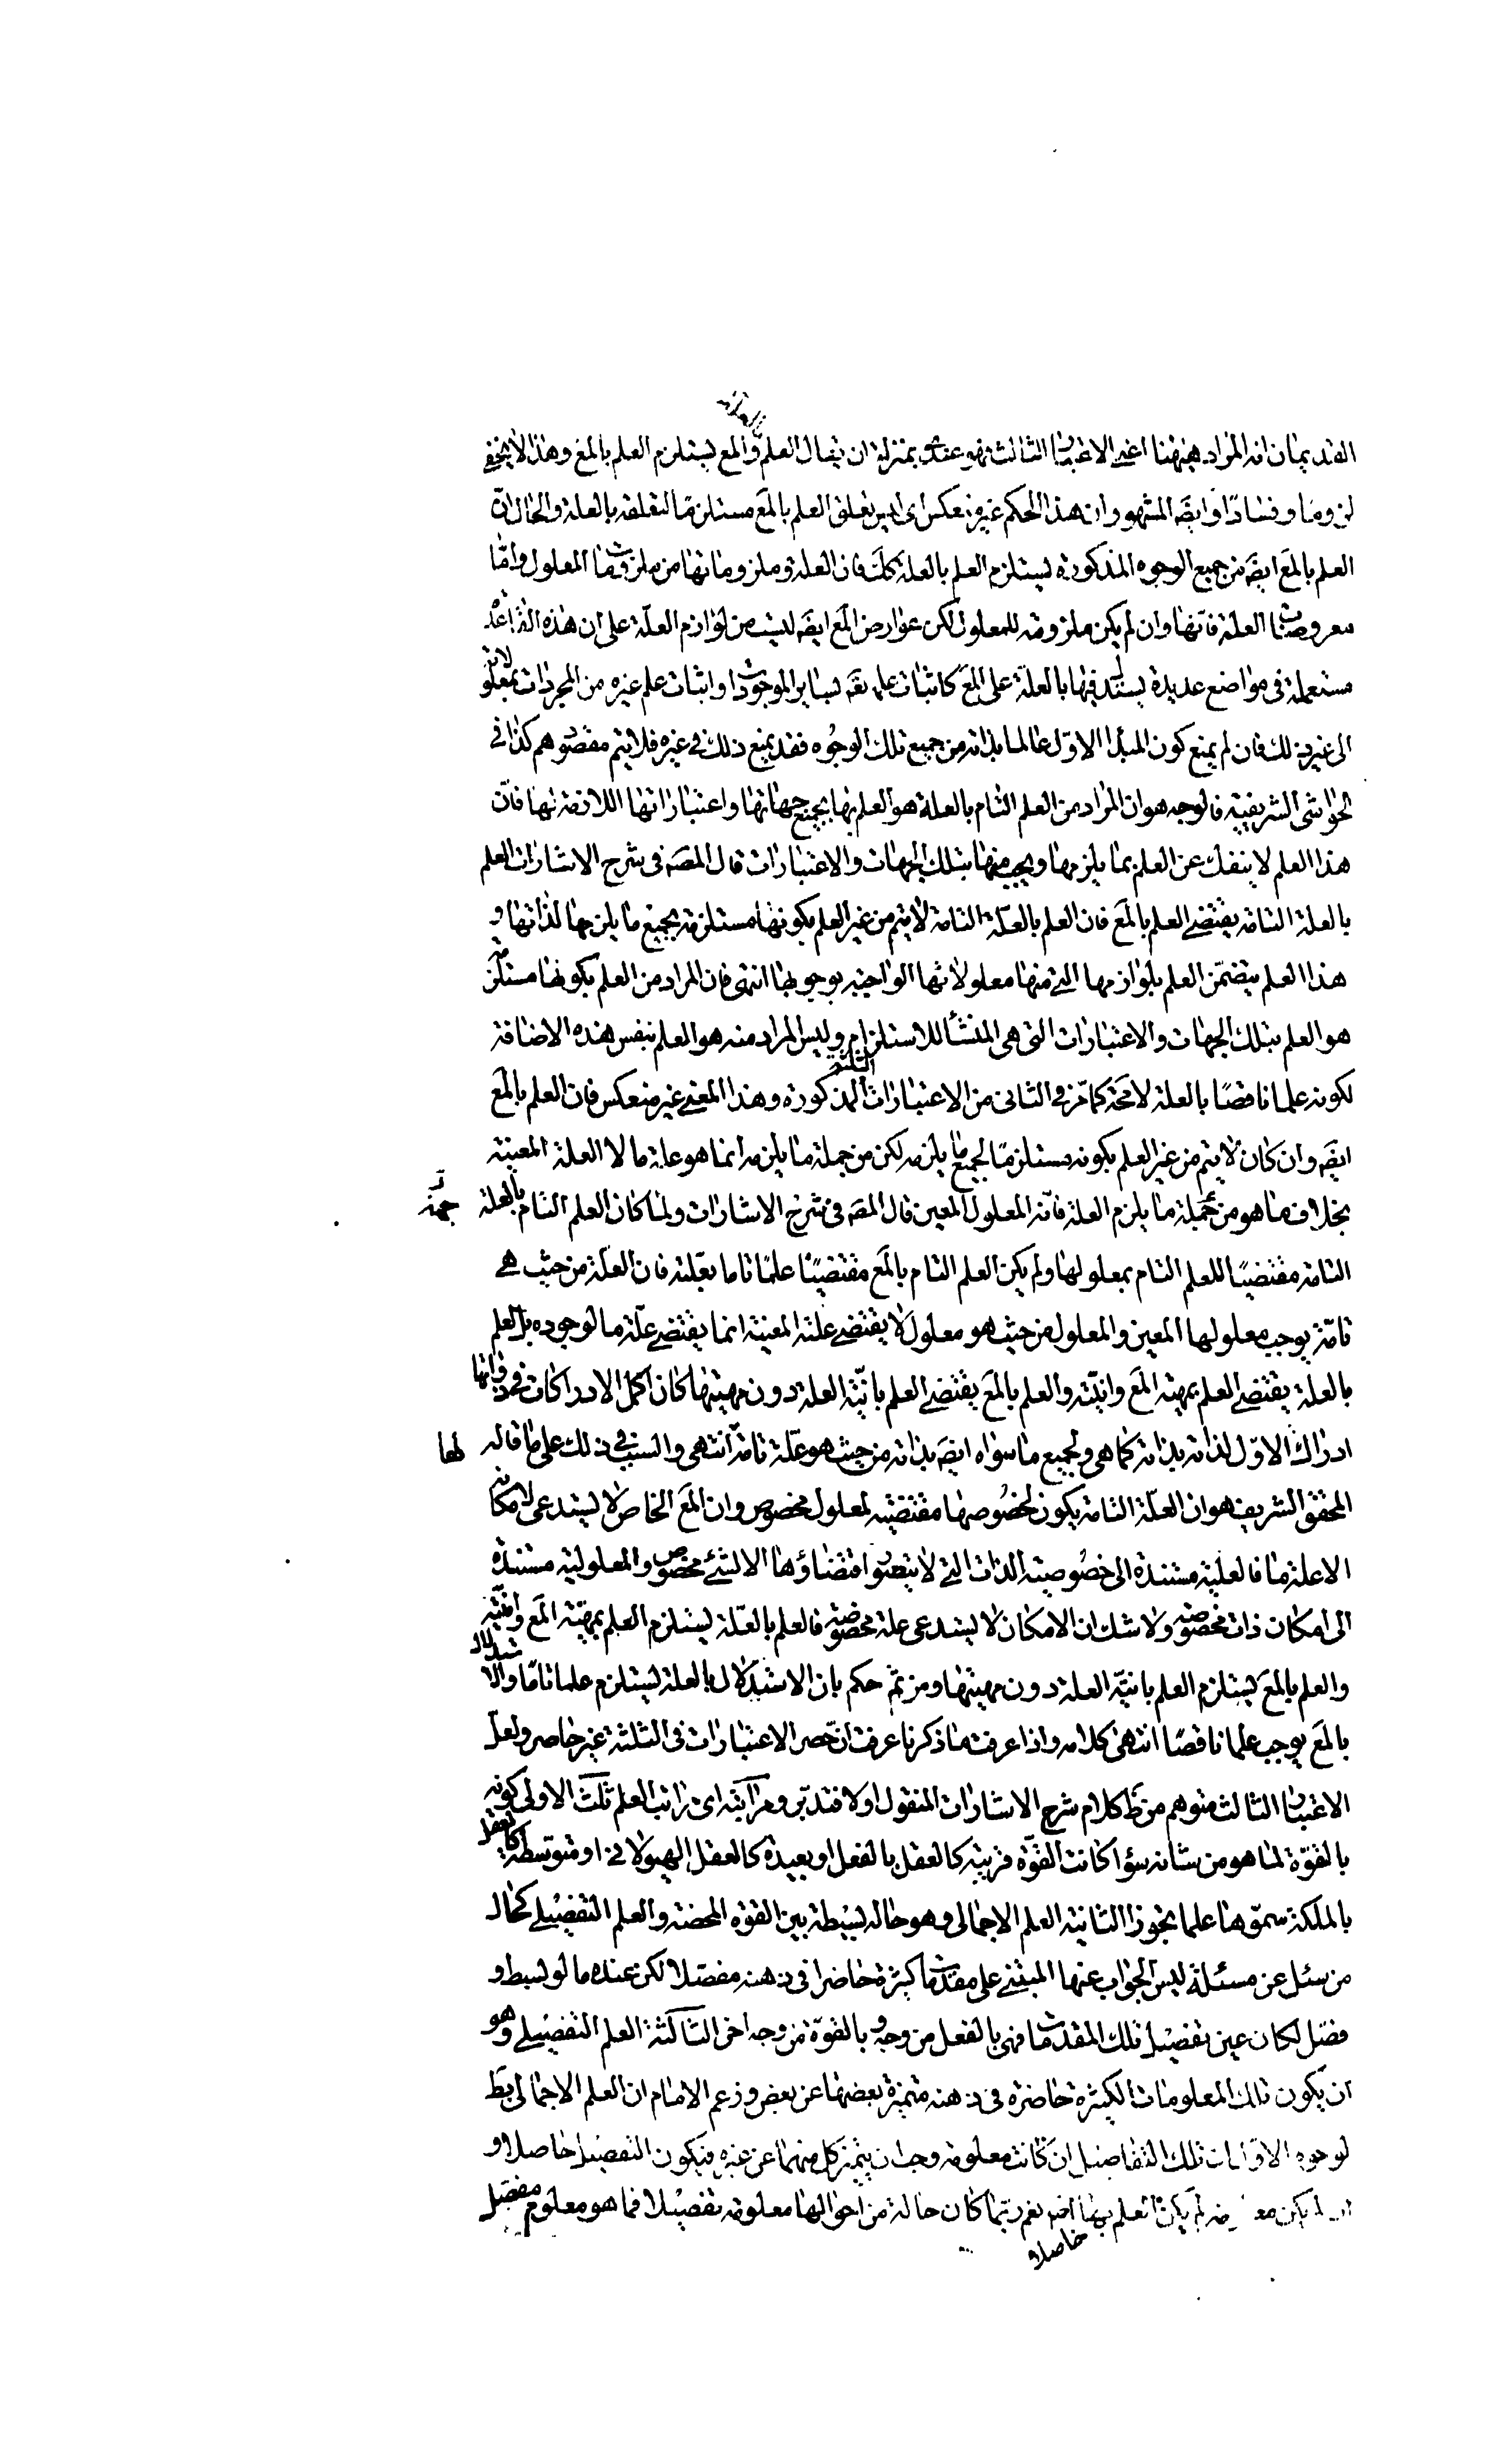 القديمان انه المراد ههنا اعنى الاعتبار الثالث فهو عندى بمنزلة ان يقال العلم بالعلة والمع يستلزم العلم بالمع وهذا لا يخفى
لزوما وفسادا وايضَ المشهور ان هذا الحكم غير منعكس اى ليس تعلق العلم بالمع مستلزما لتعلقه بالعلة والحال ان
العلم بالمع ايضَ من جميع الوجوه المذكورة يستلزم العلم بالعلة كلَك فان العلة وملزوماتها من ملزومات المعلول وامّا
معروضات العلة فانها وان لم يكن ملزومة للمعلول لكن عوارض المع ايضَ ليست من لوازم العلّة على ان هذه القاعدة
مستعملة فى مواضع عديدة يستدل فيها بالعلّة على المع كاثبات علمه تقَ بساير الموجودات واثبات علم غيره من المجردات بمعلولاته
الى غير ذلك فان لم يمنع كون المبدا الاوّل عالما بذاته من جميع تلك الوجوه فقد يمنع ذلك فى غيره فلا يتم مقصودهم كذا فى
الحواشى الشريفية فالوجه هو ان المراد من العلم التام بالعلة هو العلم بها بجميع جهاتها واعتباراتها اللازمة لها فانّ
هذا العلم لا ينفك عن العلم بما يلزمها ويجب منها بتلك الجهات والاعتبارات قال المصَ فى شرح الاشارات العلم
بالعلة التامة يقتضى العلم بالمع فان العلم بالعلّة التامة لا يتم من غير العلم بكونها مستلزمة بجميع ما يلزمها لذاتها و
هذا العلم يتضمّن العلم بلوازمها التى منها معلولاتها الواجبة بوجوبها انتهى فان المراد من العلم بكونها مستلزمة
هو العلم بتلك الجهات والاعتبارات التى هى المنشأ للاستلزام وليس المراد منه هو العلم بنفس هذه الاضافة
لكونه علما ناقصًا بالعلة لا محَة كما مّر فى الثانى من الاعتبارات الثلثة المذكورة وهذا المعنى غير منعكس فان العلم بالمع
ايضَ وان كان لا يتم من غير العلم بكونه مستلزما لجميع ما يلزمه لكن من جملة ما يلزمه انما هو علة ما لا العلة المعينة
بخلاف ما هو من جملة ما يلزم العلة فانّه المعلول المعين قال المصَ فى شرح الاشارات ولما كان العلم التام بالعلة
التامة مقتضيًا للعلم التام بمعلولها ولم يكن العلم التام بالمع مقتضيًا علمًا تاما بعّلته فان العلّة من حيث هى
تامّة يوجب معلولها المعين والمعلول من حيث هو معلول لا يقتضى علته المعينة انما يقتضى علّة ما لوجوده بل العلم
بالعلة يقتضى العلم بمهية المع وانيّته والعلم بالمع يقتضى العلم بانيّة العلة دون مهيتها كان اكمل الادراكات فى ذواتها
ادراك الاوّل لذاته بذاته كما هى ولجميع ما سواه ايضَ بذاته من حيث هو علّة تامّة انتهى والسبب فى ذلك على ما قاله
المحقق الشريف هو ان العلّة التامة يكون لخصوصها مقتضية لمعلول مخصوص وان المع الخاص لا يستدعى لامكانه
الا علة ما فالعلية مستندة الى خصوصية الذات التى لا يتصور اقتضاؤها الا لشئ مخصوص والمعلولية مستندة
الى امكان ذات مخصوصة ولا شك ان الامكان لا يستدعى علة مخصوصة فالعلم بالعلّة يستلزم العلم بمهيّة المع وانيّته
والعلم بالمع يستلزم العلم بانيّة العلة دون مهيتها ومن ثم حكم بان الاستدلال بالعلة يستلزم علما تامّا والاستدلال
بالمع يوجب علما ناقصًا انتهى كلامه واذا عرفت ما ذكرنا عرفت انّ حصر الاعتبارات فى الثلثة غير حاصر ولعلّ
الاعتبار الثالث متوهم من ظَ كلام شرح الاشارات المنقول اولا فتدبّر ومراتبه اى مراتب العلم ثلث الاولى كونه
بالقوّة لما هو من شانه سواء كانت القوّة قريبة كالعقل بالفعل او بعيدة كالعقل الهيولانى او متوسطة كالعقل
بالملكة سموّها علما تجوزا الثانية العلم الاجمالى وهو حالة بسيطة بين القوة المحضة والعلم التفصيلى كحال
من سئل عن مسئلة ليس الجواب عنها المبتنى على مقدمات كثيرة حاضرا فى ذهنه مفصّلا لكن عنده ما لو بسط و
فصّل لكان عين تفصيل تلك المقدمات فهى بالفعل من وجه وبالقوّة من وجه اخر الثالثة العلم التفصيلى وهو
ان يكون تلك المعلومات الكثيرة حاضرة فى ذهنه متميزة بعضها عن بعض وزعم الامام ان العلم الاجمالى بطَ
لوجوه الاوّل ان تلك التفاصيل ان كانت معلومة وجب ان يتميّز كل منهما عن غيره فيكون التفصيل حاصلا و
ان لم يكن معلومة لم يكن العلم بها حاصلا نعم ربّما كان حالة من احوالها معلومة تفصيلا فما هو معلوم مفصّل